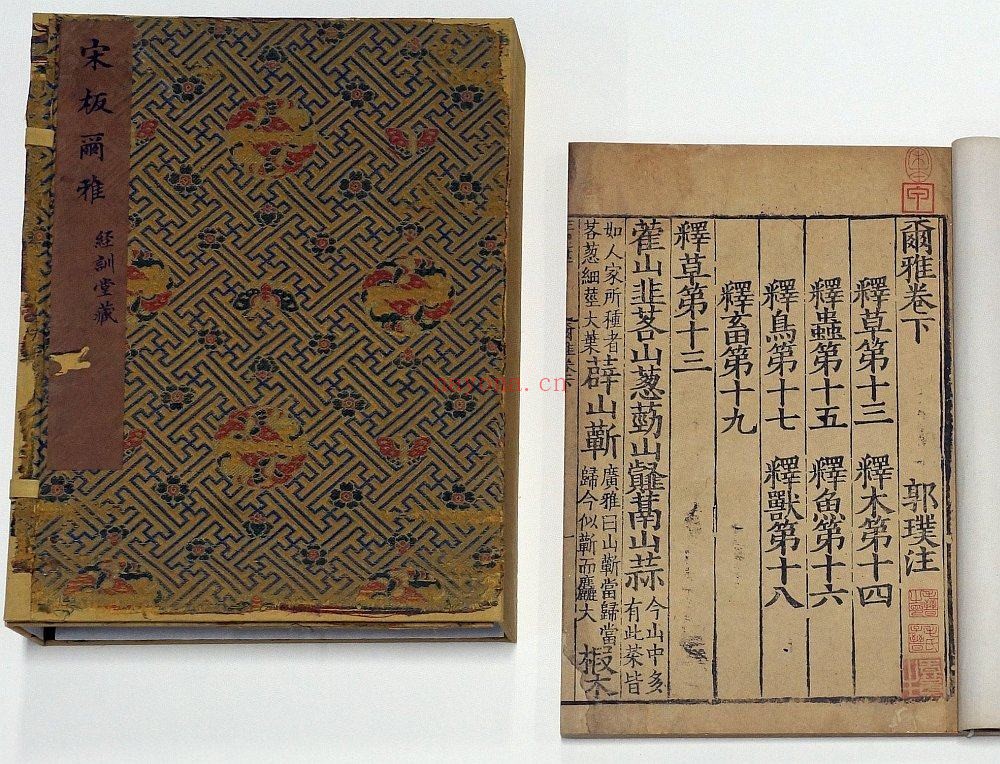 宋板爾雅
經訓堂藏
宋本
爾雅卷下 郭璞注
釋草第十三 釋木第十四
釋蟲第十五 釋魚第十六
釋鳥第十七 釋獸第十八
釋畜第十九
釋草第十三
藿山韭茖山葱葝山䪥蒚山蒜 今山中多
有此菜皆
如人家所種者
茖葱細莖大葉
薜山蘄
廣雅曰山蘄當歸當
歸今似蘄而麤大
椴木